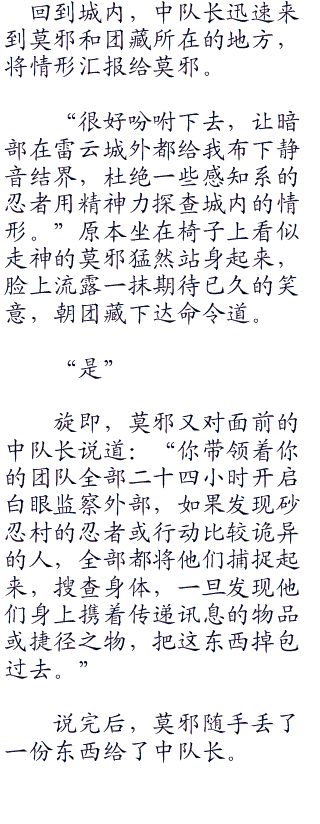 回到城内，中队长迅速来
到莫邪和团藏所在的地方，
将情形汇报给莫邪。
“很好吩咐下去，让暗
部在雷云城外都给我布下静
音结界，杜绝一些感知系的
忍者用精神力探查城内的情
形。”原本坐在椅子上看似
走神的莫邪猛然站身起来，
脸上流露一抹期待已久的笑
意，朝团藏下达命令道。
“是”
旋即，莫邪又对面前的
中队长说道：“你带领着你
的团队全部二十四小时开启
白眼监察外部，如果发现砂
忍村的忍者或行动比较诡异
的人，全部都将他们捕捉起
来，搜查身体，一旦发现他
们身上携着传递讯息的物品
或捷径之物，把这东西掉包
过去。”
说完后，莫邪随手丢了
一份东西给了中队长。